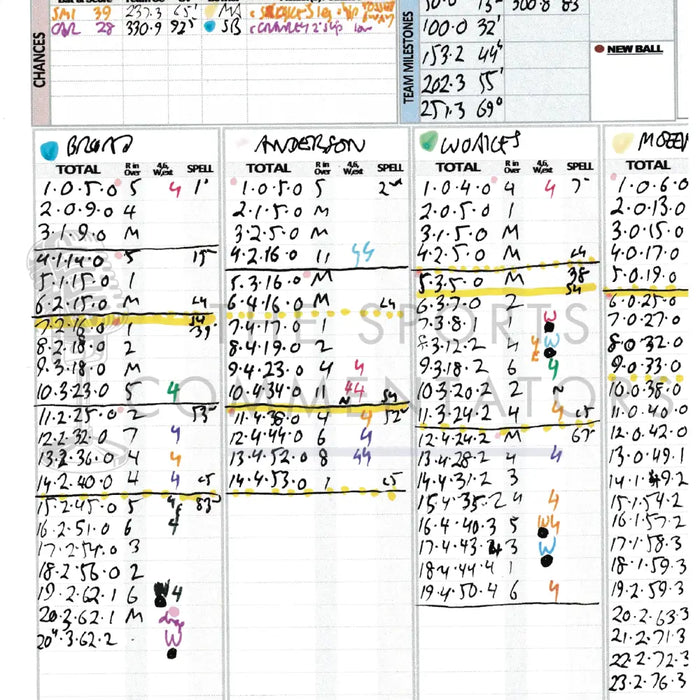 CHANCES
SMI 39 237.3 65' MA
330.9 92' SB
TEAM MILESTONES
300.8 83
100.0 32'
153.2 44'
202.3 55'
251.3 69'
NEW BALL
BROAD
TOTAL R in Over 4,6, W,ext SPELL
1.0.5.0 5 4 1'
2.0.9.0 4
3.1.9.0 M
4.1.14.0 5 15
5.1.15.0 1
6.2.15.0 M L4
7.2.16.0 1 54 39'
8.2.18.0 2
9.3.18.0 M
10.3.23.0 5 4
11.2.25.0 2 53
12.2.32.0 7 4
13.2.36.0 4 4
14.2.40.0 4 4 L5
15.2.45.0 5 4 83
16.2.51.0 6 4
17.2.54.0 3
18.2.56.0 2
19.2.62.1 6 W4
20.3.62.1 M drop
20.3.62.2 . W
ANDERSON
TOTAL R in Over 4,6, W,ext SPELL
1.0.5.0 5 2
2.1.5.0 M
3.2.5.0 M
4.2.16.0 11 44
5.3.16.0 M
6.4.16.0 M L4
7.4.17.0 1
8.4.19.0 2
9.4.23.0 4 4
10.4.34.0 11 44 54
11.4.38.0 4 4 52
12.4.44.0 6 4
13.4.52.0 8 44
14.4.53.0 1 L5
WOAKES
TOTAL R in Over 4,6, W,ext SPELL
1.0.4.0 4 4 7
2.0.5.0 1
3.1.5.0 M
4.2.5.0 M L4
5.3.5.0 M 38 54
6.3.7.0 2
7.3.8.1 1 W
8.3.12.2 4 4 W
9.3.18.2 6 4
10.3.20.2 2
11.3.24.2 4 4 L5
12.4.24.2 M 67
13.4.28.2 4 4
14.4.31.2 3
15.4.35.2 4 4
16.4.40.3 5 W4
17.4.43.4 3 W
18.4.44.4 1
19.4.50.4 6 4
TOTAL
1.0.6.0
2.0.13.0
3.0.15.0
4.0.17.0
5.0.19.0
6.0.25.0
7.0.27.0
8.0.32.0
9.0.33.0
10.0.38.0
11.0.40.0
12.0.42.0
13.0.49.1
14.1.49.2
15.1.54.2
16.1.57.2
17.1.58.3
18.1.59.3
19.2.59.3
20.2.63.3
21.2.71.3
22.2.72.3
23.2.76.3
THE SPORTS
COMMENTATORS